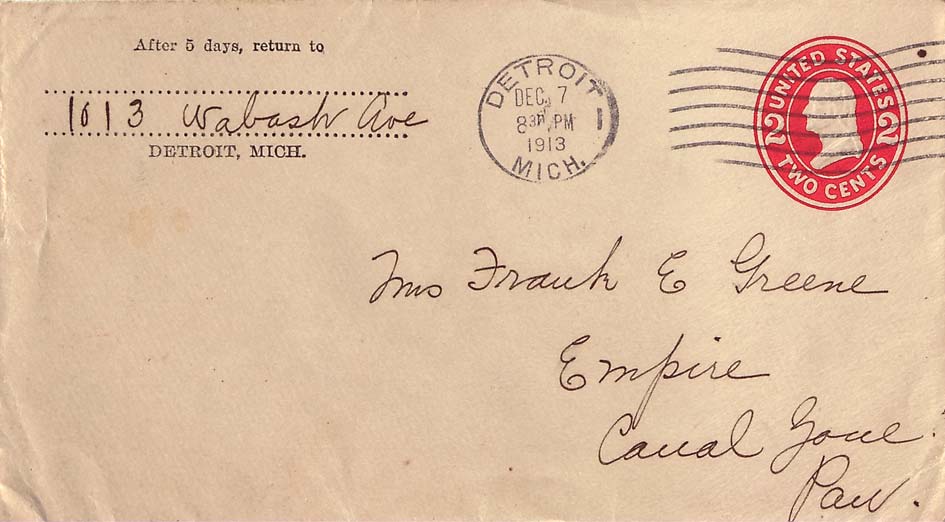 After 5 days, return to
1013 Wabash Ave
DETROIT, MICH.
DETROIT
DEC 7
8 30 PM
1913
MICH.
1
UNITED STATES
2 2
TWO CENTS
Mrs Frank E Greene
Empire
Canal Zone.
Pan.